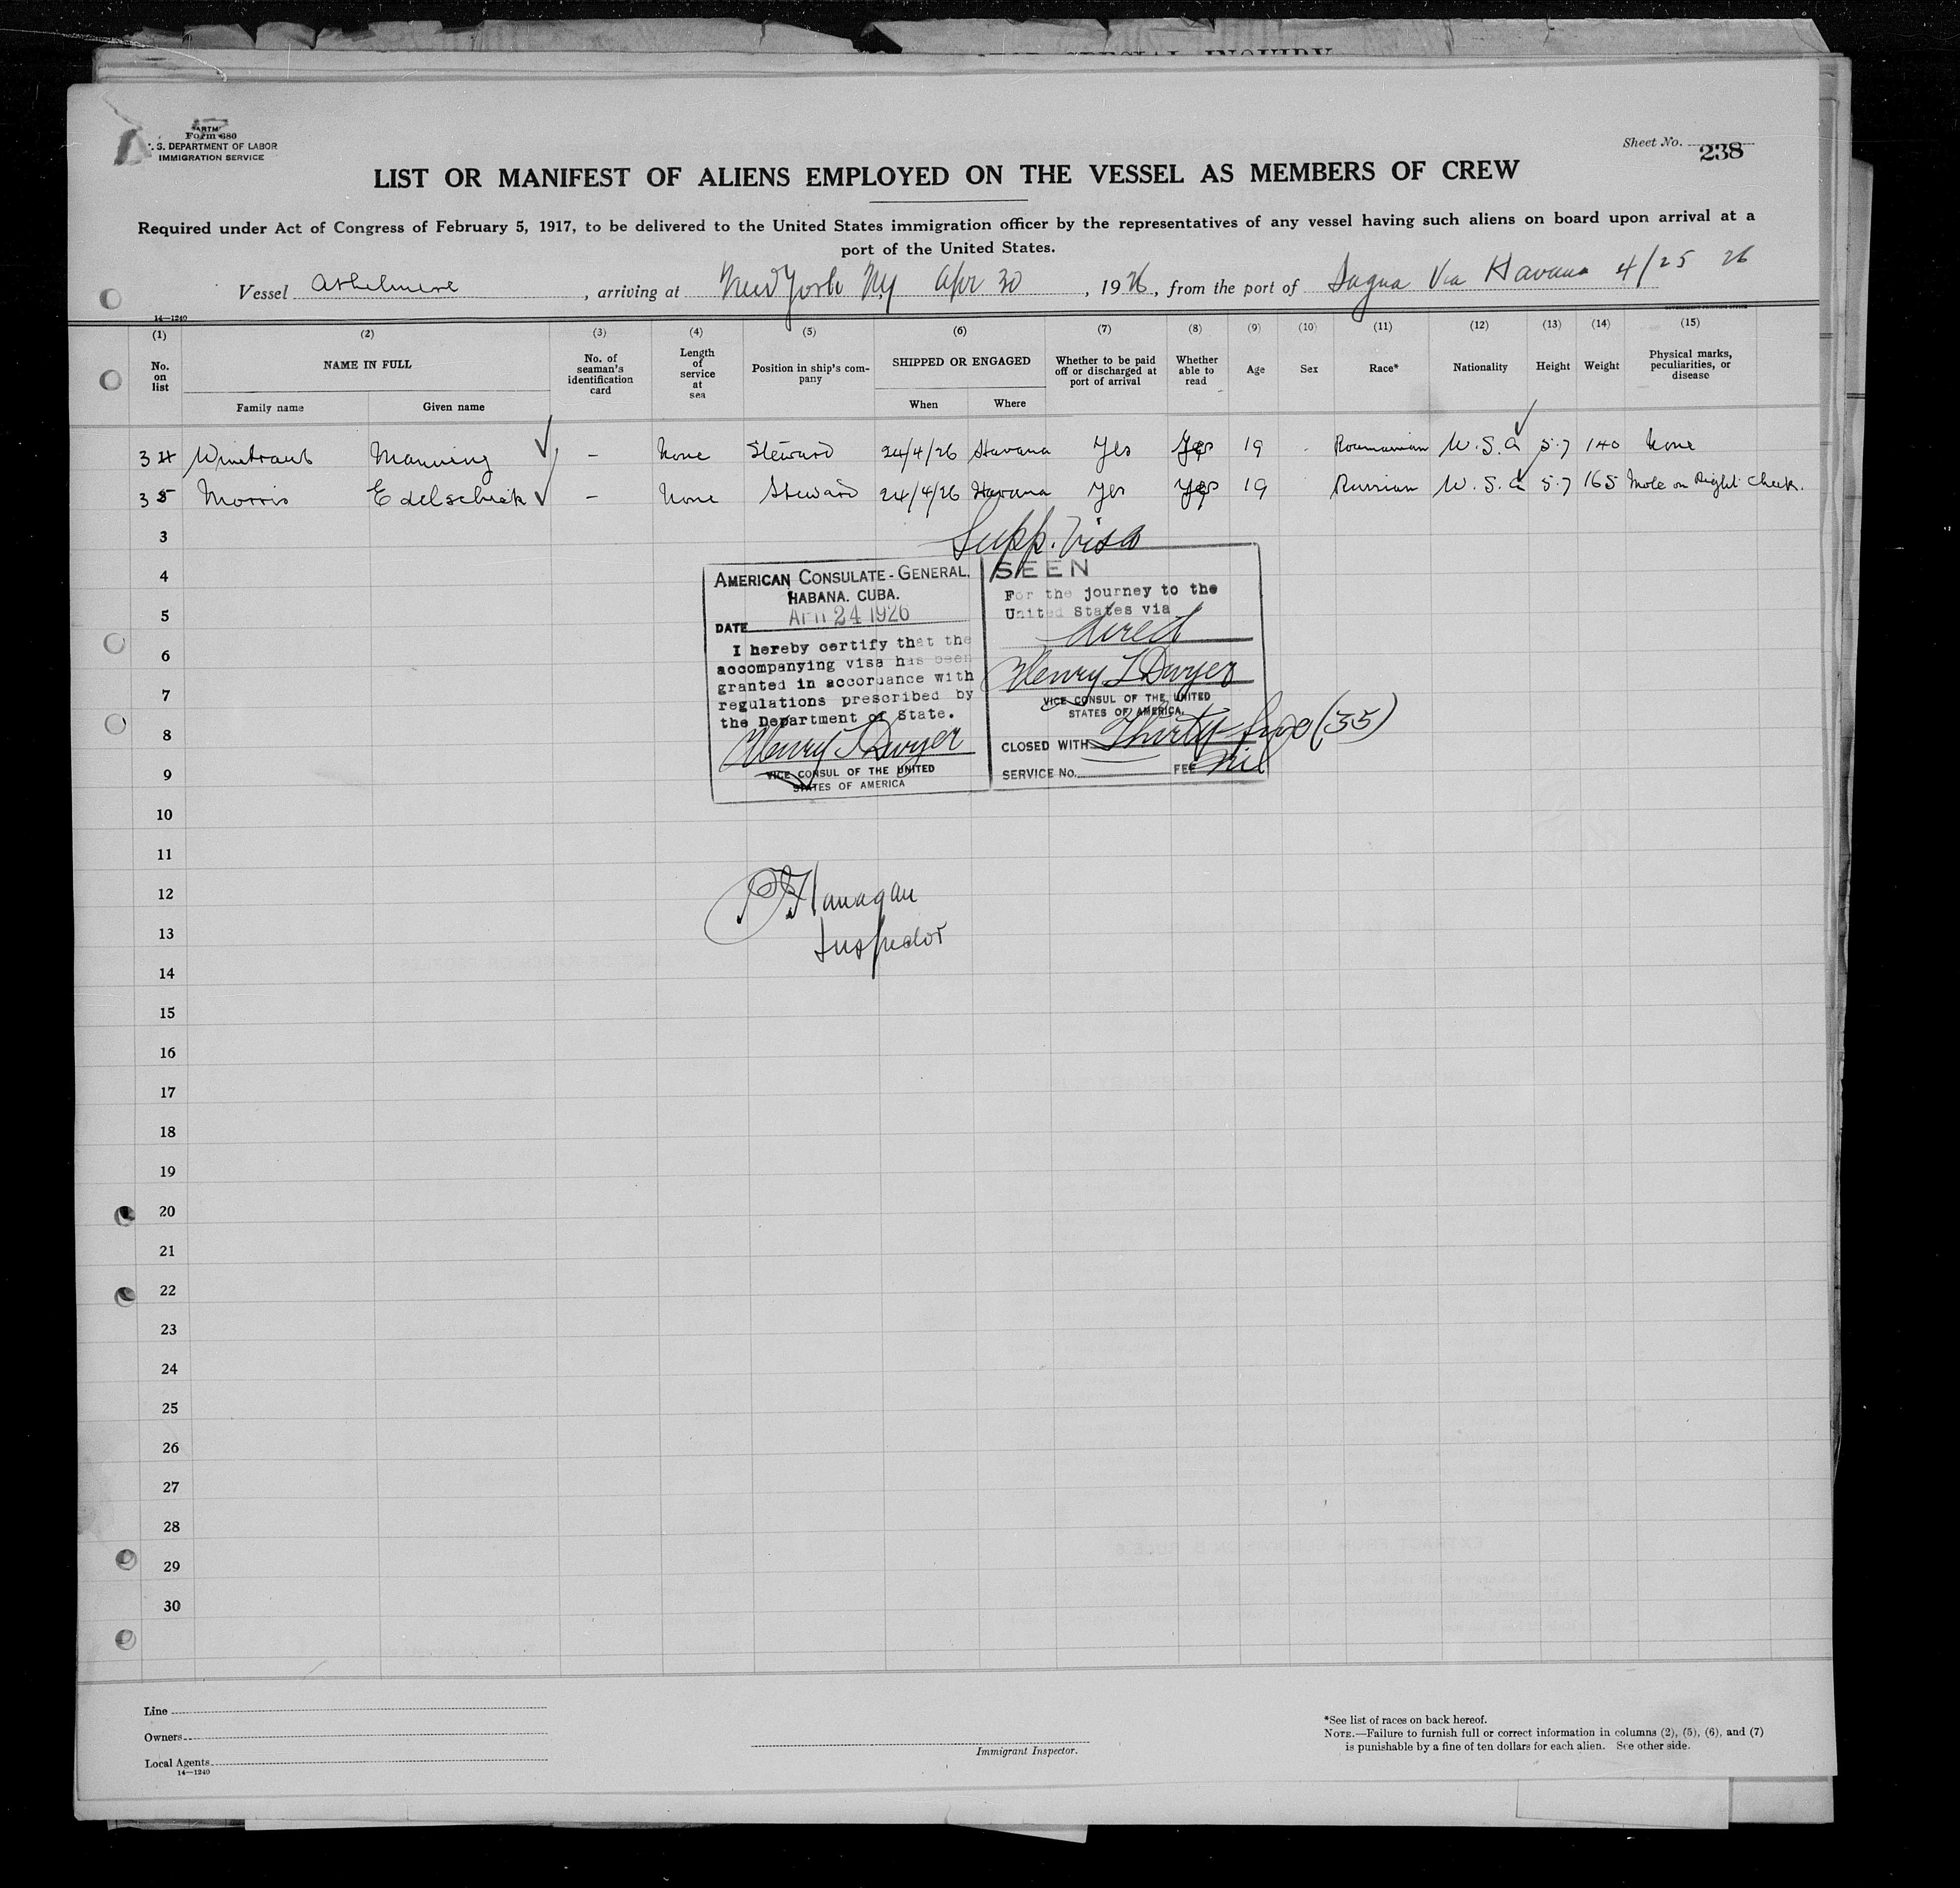 Form 680
U. S. DEPARTMENT OF LABOR
IMMIGRATION SERVICE
Sheet No. 238
LIST OR MANIFEST OF ALIENS EMPLOYED ON THE VESSEL AS MEMBERS OF CREW
Required under Act of Congress of February 5, 1917, to be delivered to the United States immigration officer by the representatives of any vessel having such aliens on board upon arrival at a
port of the United States.
Vessel Athelmere, arriving at New York NY Apr 30, 1926, from the port of Sagua Via Havana 4/25 26
14—1240
(1) (2) (3) (4) (5) (6) (7) (8) (9) (10) (11) (12) (13) (14) (15)
No. on list NAME IN FULL No. of seaman's identification card Length of service at sea Position in ship's company SHIPPED OR ENGAGED Whether to be paid off or discharged at port of arrival Whether able to read Age Sex Race* Nationality Height Weight Physical marks, peculiarities, or disease
Family name Given name When Where
34 Winetraub Manning ✓ – None Steward 24/4/26 Havana Yes Yes 19 Roumanian U.S.A 5.7 140 None
35 Morris Edelschick ✓ – None Steward 24/4/26 Havana Yes Yes 19 Russian U.S.A 5.7 165 Mole on Right Cheek.
3
Supp. Visa
4
AMERICAN CONSULATE-GENERAL,
HABANA. CUBA.
DATE Apr 24 1926
I hereby certify that the
accompanying visa has been
granted in accordance with
regulations prescribed by
the Department of State.
Henry T Dwyer
VICE CONSUL OF THE UNITED
STATES OF AMERICA
SEEN
For the journey to the
United States via
direct
Henry T Dwyer
VICE CONSUL OF THE UNITED
STATES OF AMERICA.
CLOSED WITH Thirty five (35)
SERVICE No. FEE Nil
5
6
7
8
9
10
11
12
Flanagan
13
Inspector
14
15
16
17
18
19
20
21
22
23
24
25
26
27
28
29
30
Line
Owners
Local Agents
14—1240
Immigrant Inspector.
*See list of races on back hereof.
NOTE.—Failure to furnish full or correct information in columns (2), (5), (6), and (7)
is punishable by a fine of ten dollars for each alien. See other side.